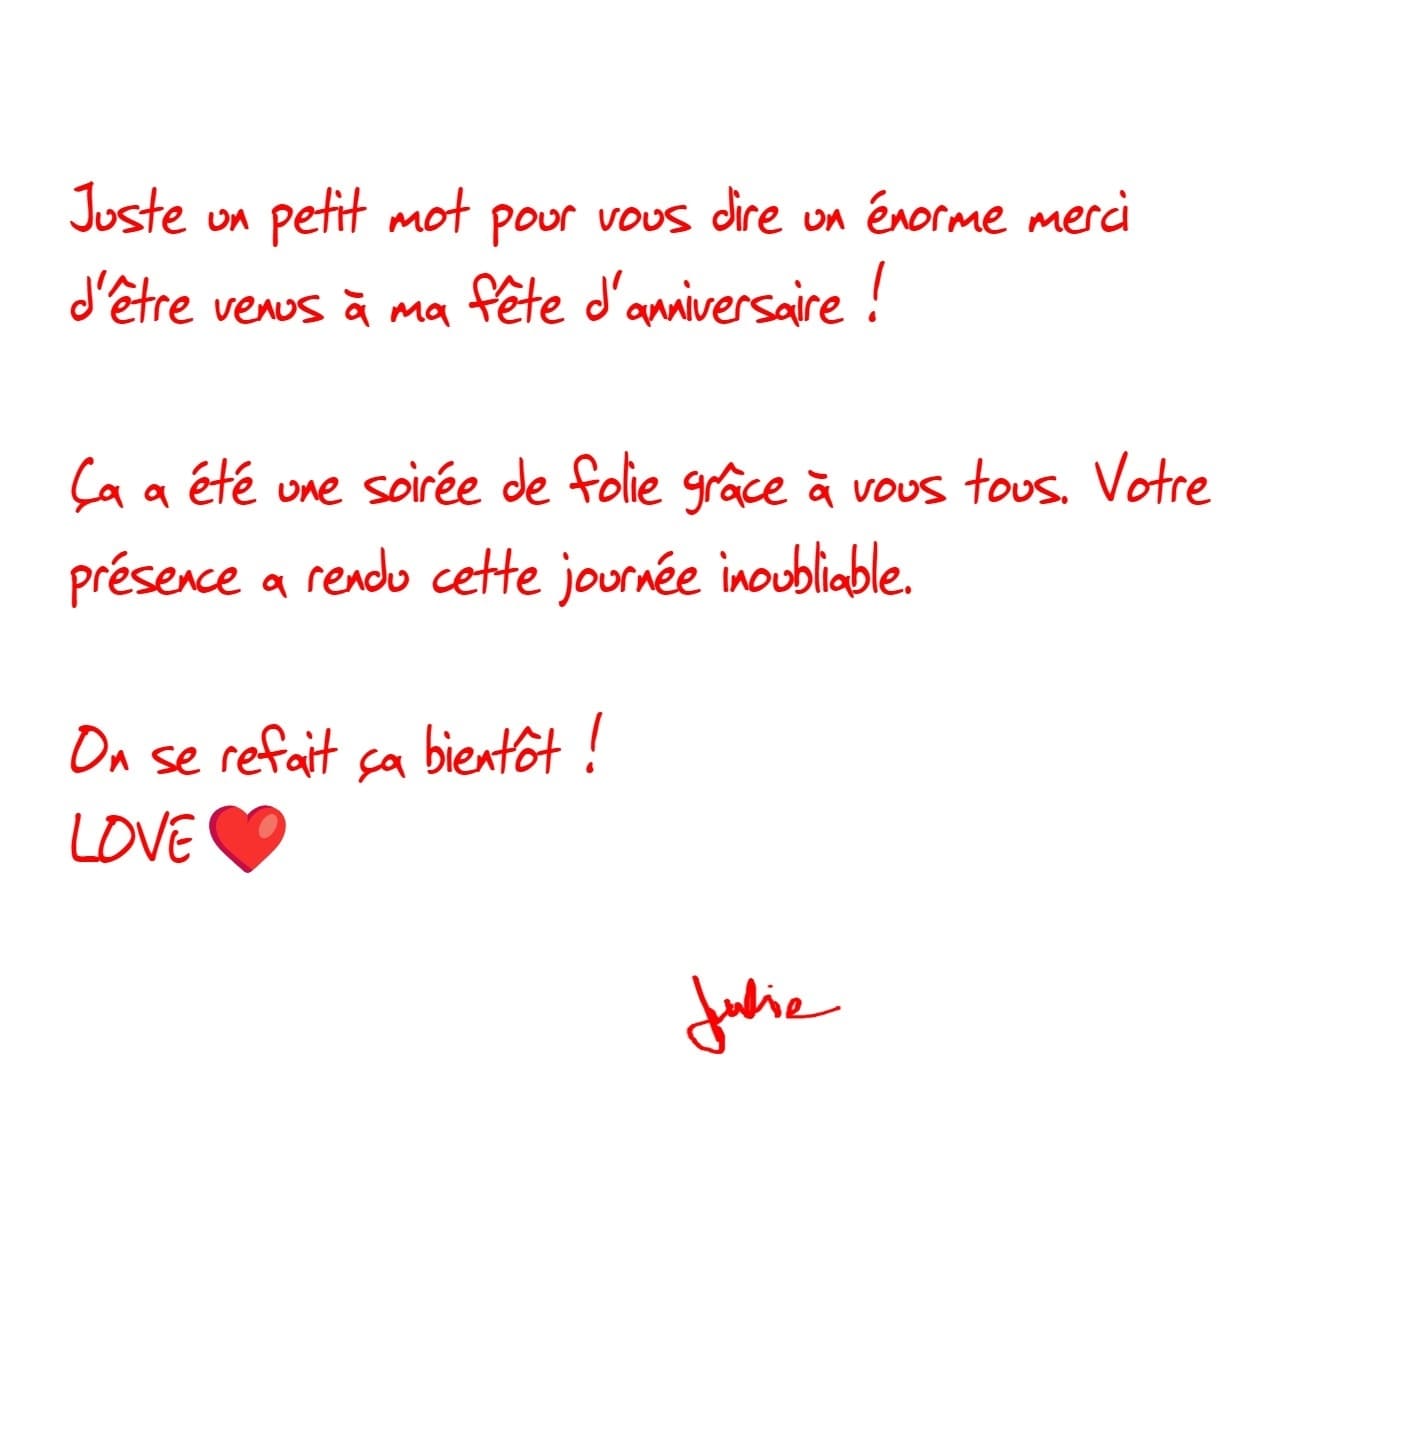 Juste un petit mot pour vous dire un énorme merci
d'être venus à ma fête d'anniversaire !
Ça a été une soirée de folie grâce à vous tous. Votre
présence a rendu cette journée inoubliable.
On se refait ça bientôt !
LOVE ❤️
Julie